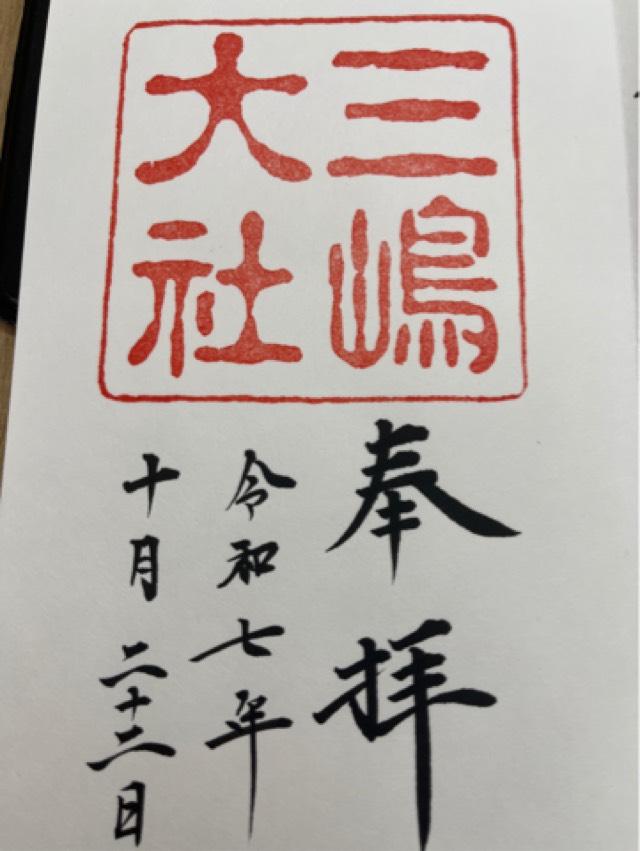 三嶋
大社
奉拝
令和七年
十月二十二日